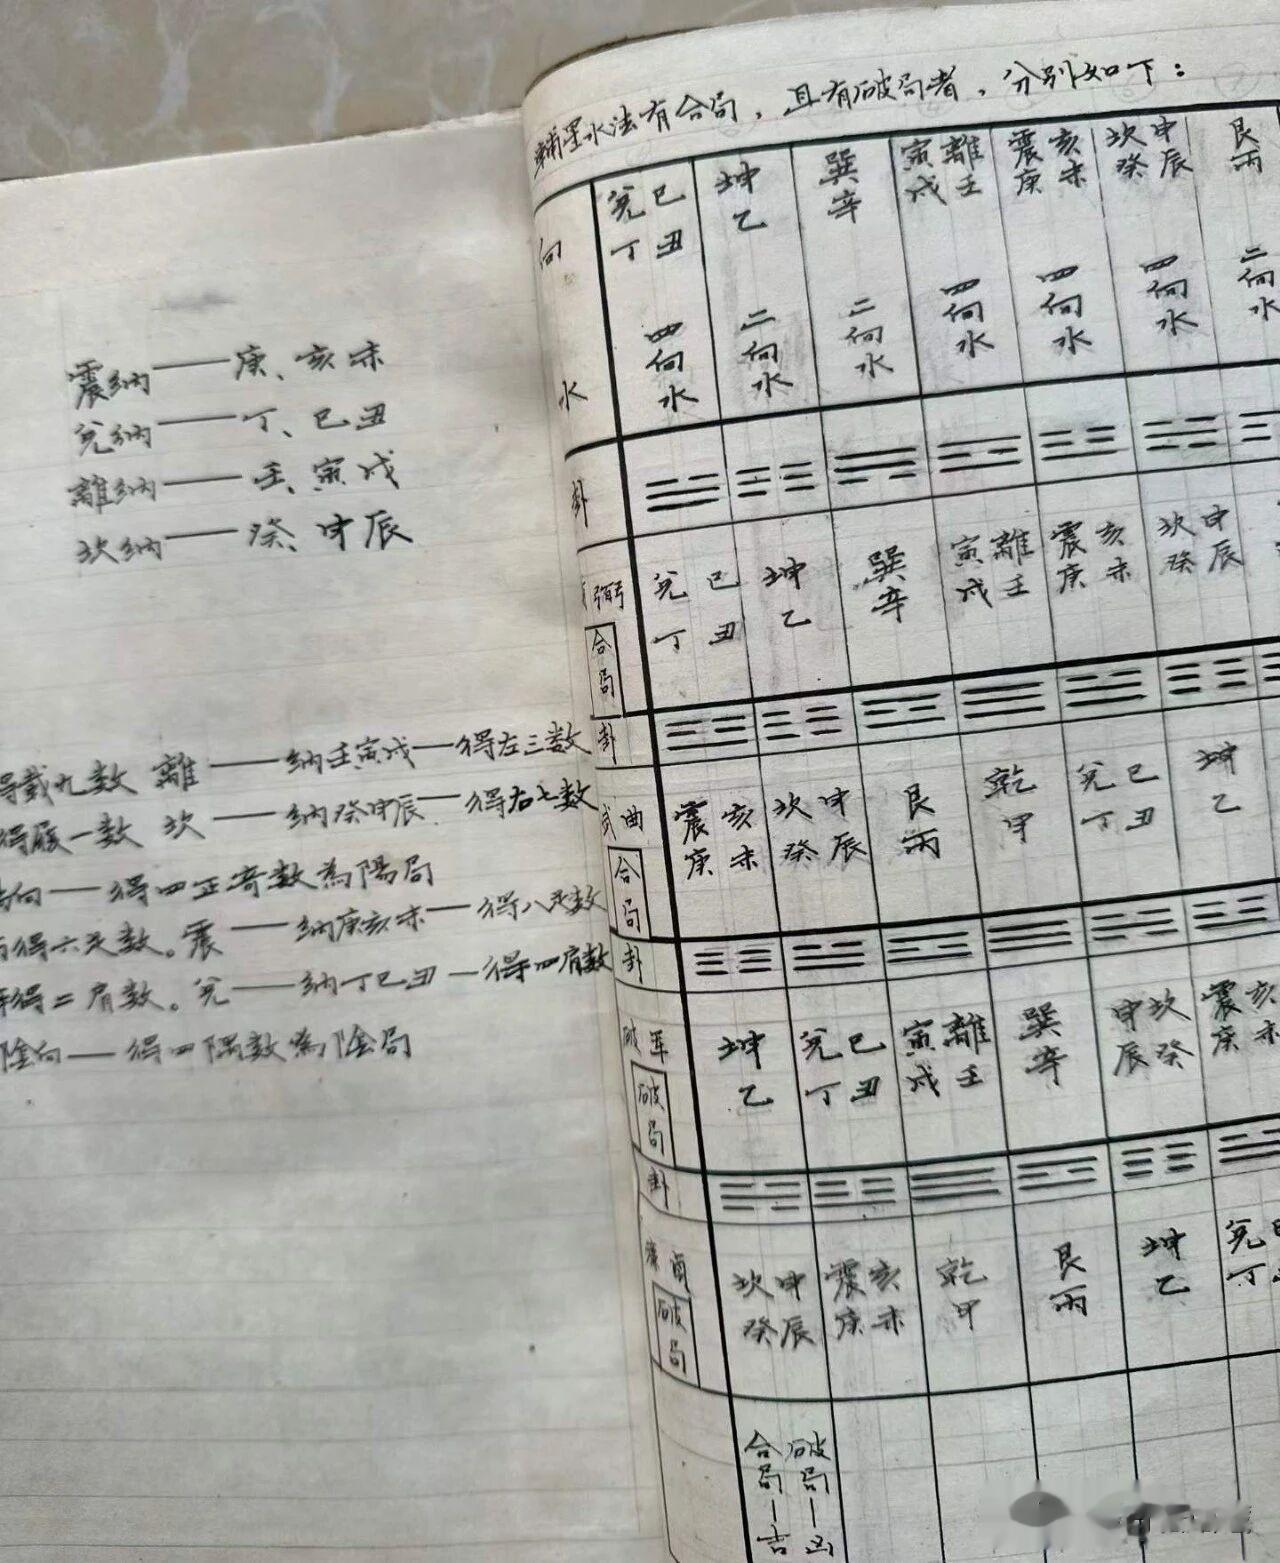 震纳——庚、亥未
兑纳——丁、巳丑
離纳——壬、寅戌
坎纳——癸、申辰
得戴九数 離——纳壬寅戌—得左三数
得履一数 坎——纳癸申辰—得右七数
向—得四正奇数為陽局
得六足数。震——纳庚亥未—得八足数
得二肩数。兑——纳丁巳丑—得四肩数
陰向—得四隅数為陰局
輔星水法有合局，且有破局者，分别如下：
向水 兑丁巳丑四向水 坤乙二向水 巽辛二向水 寅戌離壬四向水 震庚亥未四向水 坎癸申辰四向水 艮丙二向水
卦 ☱ ☷ ☴ ☲ ☳ ☵
弼 合局 兑丁巳丑 坤乙 巽辛 寅戌離壬 震庚亥未 坎癸申辰
卦
武曲 合局 震庚亥未 坎癸申辰 艮丙 乾甲 兑丁巳丑 坤乙
卦
破军 破局 坤乙 兑丁巳丑 寅戌離壬 巽辛 申辰坎癸 震庚亥未
卦
廉貞 破局 坎癸申辰 震庚亥未 乾甲 艮丙 坤乙 兑丁
合局—吉 破局—凶